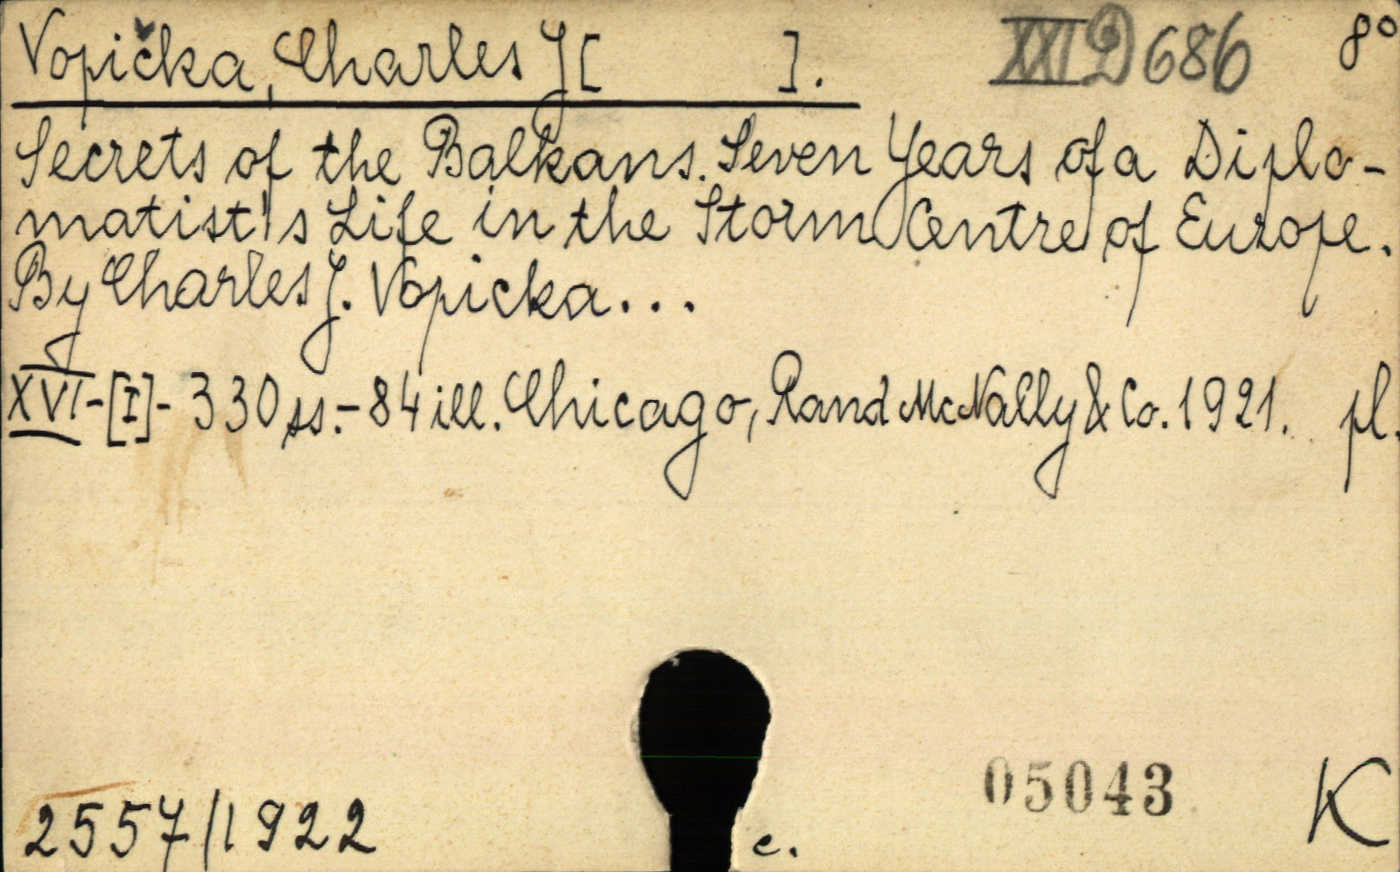 Vopička, Charles J[ ]. XXI D 686 8°
Secrets of the Balkans. Seven Years of a Diplo-
matist's Life in the Storm Centre of Europe.
By Charles J. Vopicka...
XVI-[I]-330 ss.-84 ill. Chicago, Rand McNally & Co. 1921. pl.
05043 K
2557/1922 c.